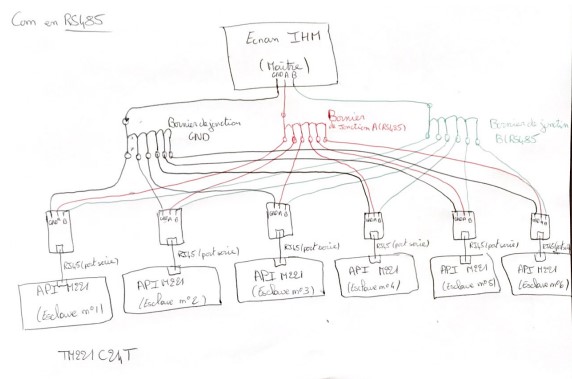 Com en RS485
Ecran IHM
(Maître)
GND A B
Bornier de jonction
GND
Bornier
de jonction A (RS485)
Bornier de jonction
B (RS485
GND A B
GND A B
GND A B
GND A B
GND A B
GND A B
RJ45 (port série)
RJ45 (port série)
RJ45 (port série)
RJ45 (port série)
RJ45 (port série)
RJ45 (port série)
API M221
(Esclave n°1)
API M221
(Esclave n°2)
API M221
(Esclave n°3)
API M221
(Esclave n°4)
API M221
(Esclave n°5)
API M221
(Esclave n°6)
TM221C24T